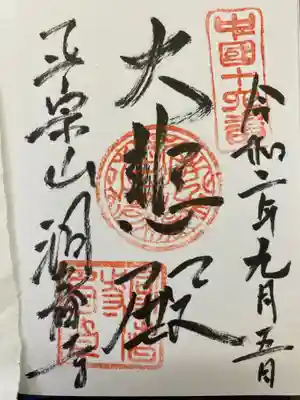 中國十六番
令和二年九月五日
大悲殿
正宗山 洞春寺